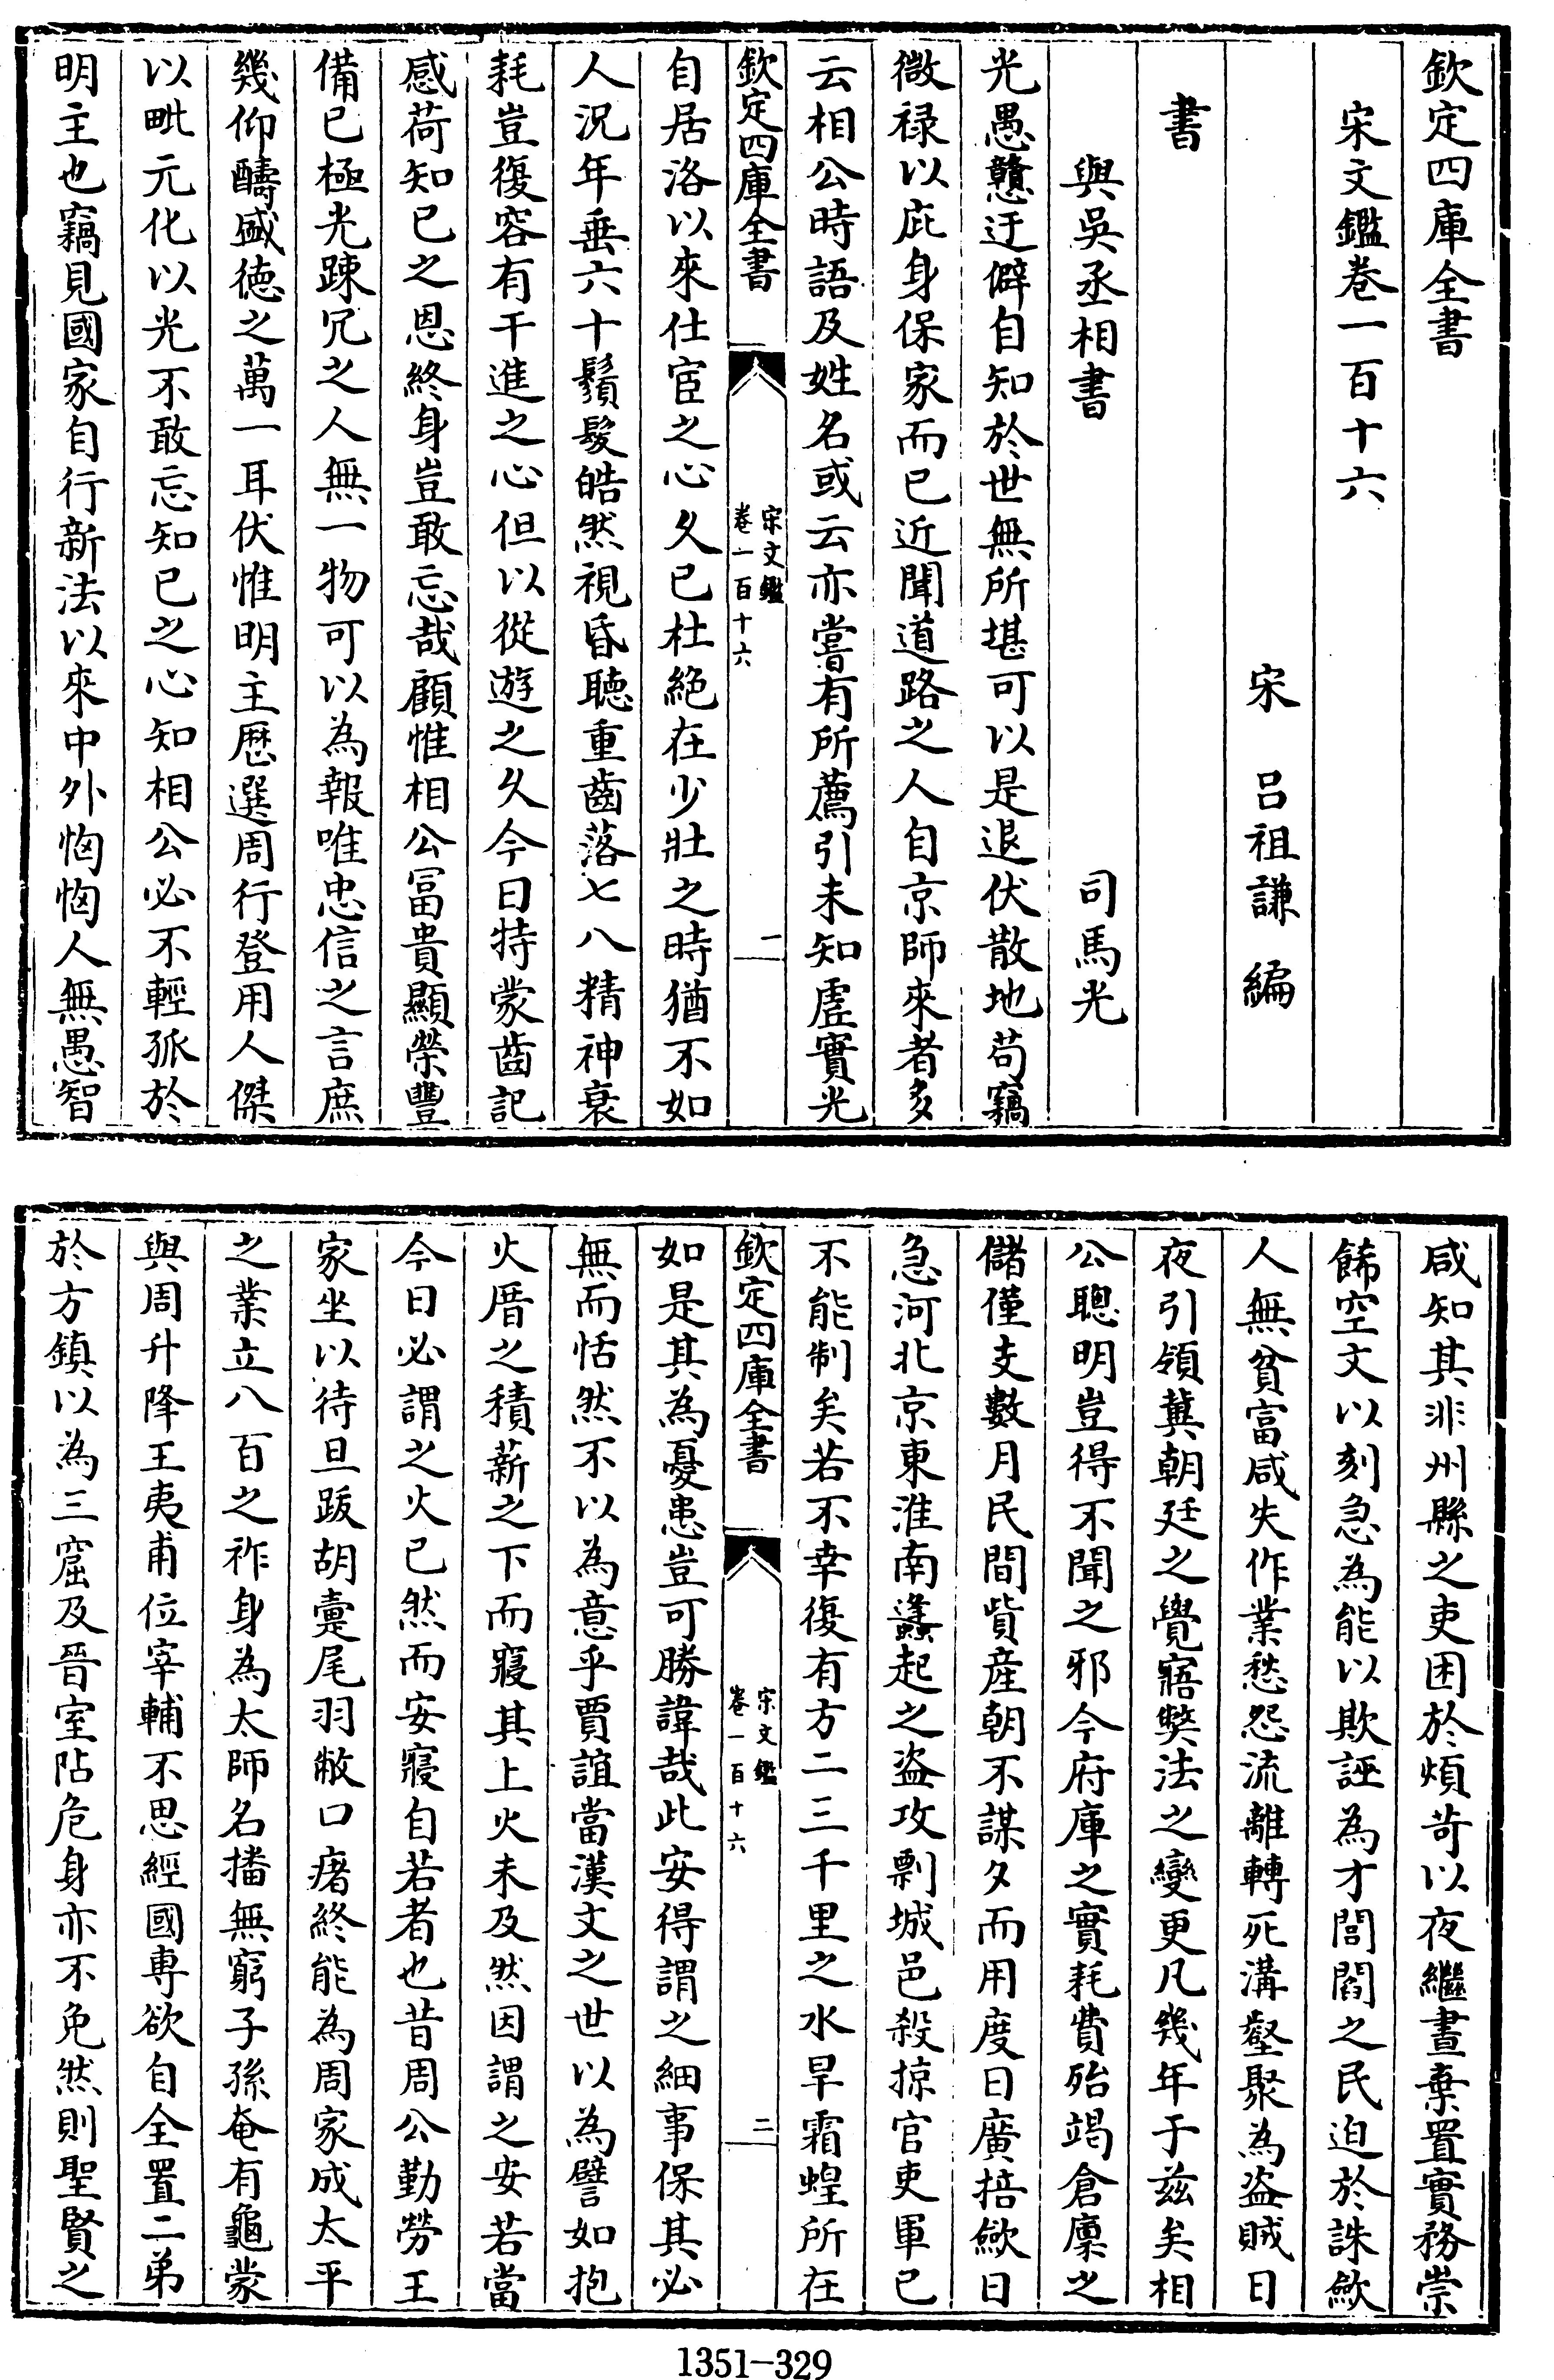 欽定四庫全書
宋文鑑卷一百十六
宋 呂祖謙 編
書
與吳丞相書 司馬光
光愚戇迂僻自知於世無所堪可以是退伏散地苟竊
微禄以庇身保家而已近聞道路之人自京師來者多
云相公時語及姓名或云亦嘗有所薦引未知虛實光
欽定四庫全書
宋文鑑
卷一百十六
一
自居洛以來仕宦之心久已杜絕在少壯之時猶不如
人況年垂六十鬚髮皓然視昏聽重齒落七八精神衰
耗豈復容有干進之心但以從遊之久今日特蒙齒記
感荷知已之恩終身豈敢忘哉顧惟相公冨貴顯榮豐
備已極光踈冗之人無一物可以為報唯忠信之言庶
幾仰醻盛德之萬一耳伏惟明主厯選周行登用人傑
以毗元化以光不敢忘知已之心知相公必不輕孤於
明主也竊見國家自行新法以來中外恟恟人無愚智
咸知其非州縣之吏困於煩苛以夜繼晝棄置實務崇
餙空文以刻急為能以欺誣為才閭閻之民迫於誅歛
人無貧富咸失作業愁怨流離轉死溝壑聚為盜賊日
夜引領冀朝廷之覺寤獘法之變更凡幾年于兹矣相
公聰明豈得不聞之邪今府庫之實耗費殆竭倉廩之
儲僅支數月民間貲産朝不謀夕而用度日廣掊歛日
急河北京東淮南蠭起之盜攻剽城邑殺掠官吏軍已
不能制矣若不幸復有方二三千里之水旱霜蝗所在
欽定四庫全書
宋文鑑
卷一百十六
二
如是其為憂患豈可勝諱哉此安得謂之細事保其必
無而恬然不以為意乎賈誼當漢文之世以為譬如抱
火厝之積薪之下而寢其上火未及然因謂之安若當
今日必謂之火已然而安寢自若者也昔周公勤勞王
家坐以待旦跋胡疐尾羽敝口瘏終能為周家成太平
之業立八百之祚身為太師名播無窮子孫奄有龜蒙
與周升降王夷甫位宰輔不思經國專欲自全置二弟
於方鎮以為三窟及晉室阽危身亦不免然則聖賢之
1351-329